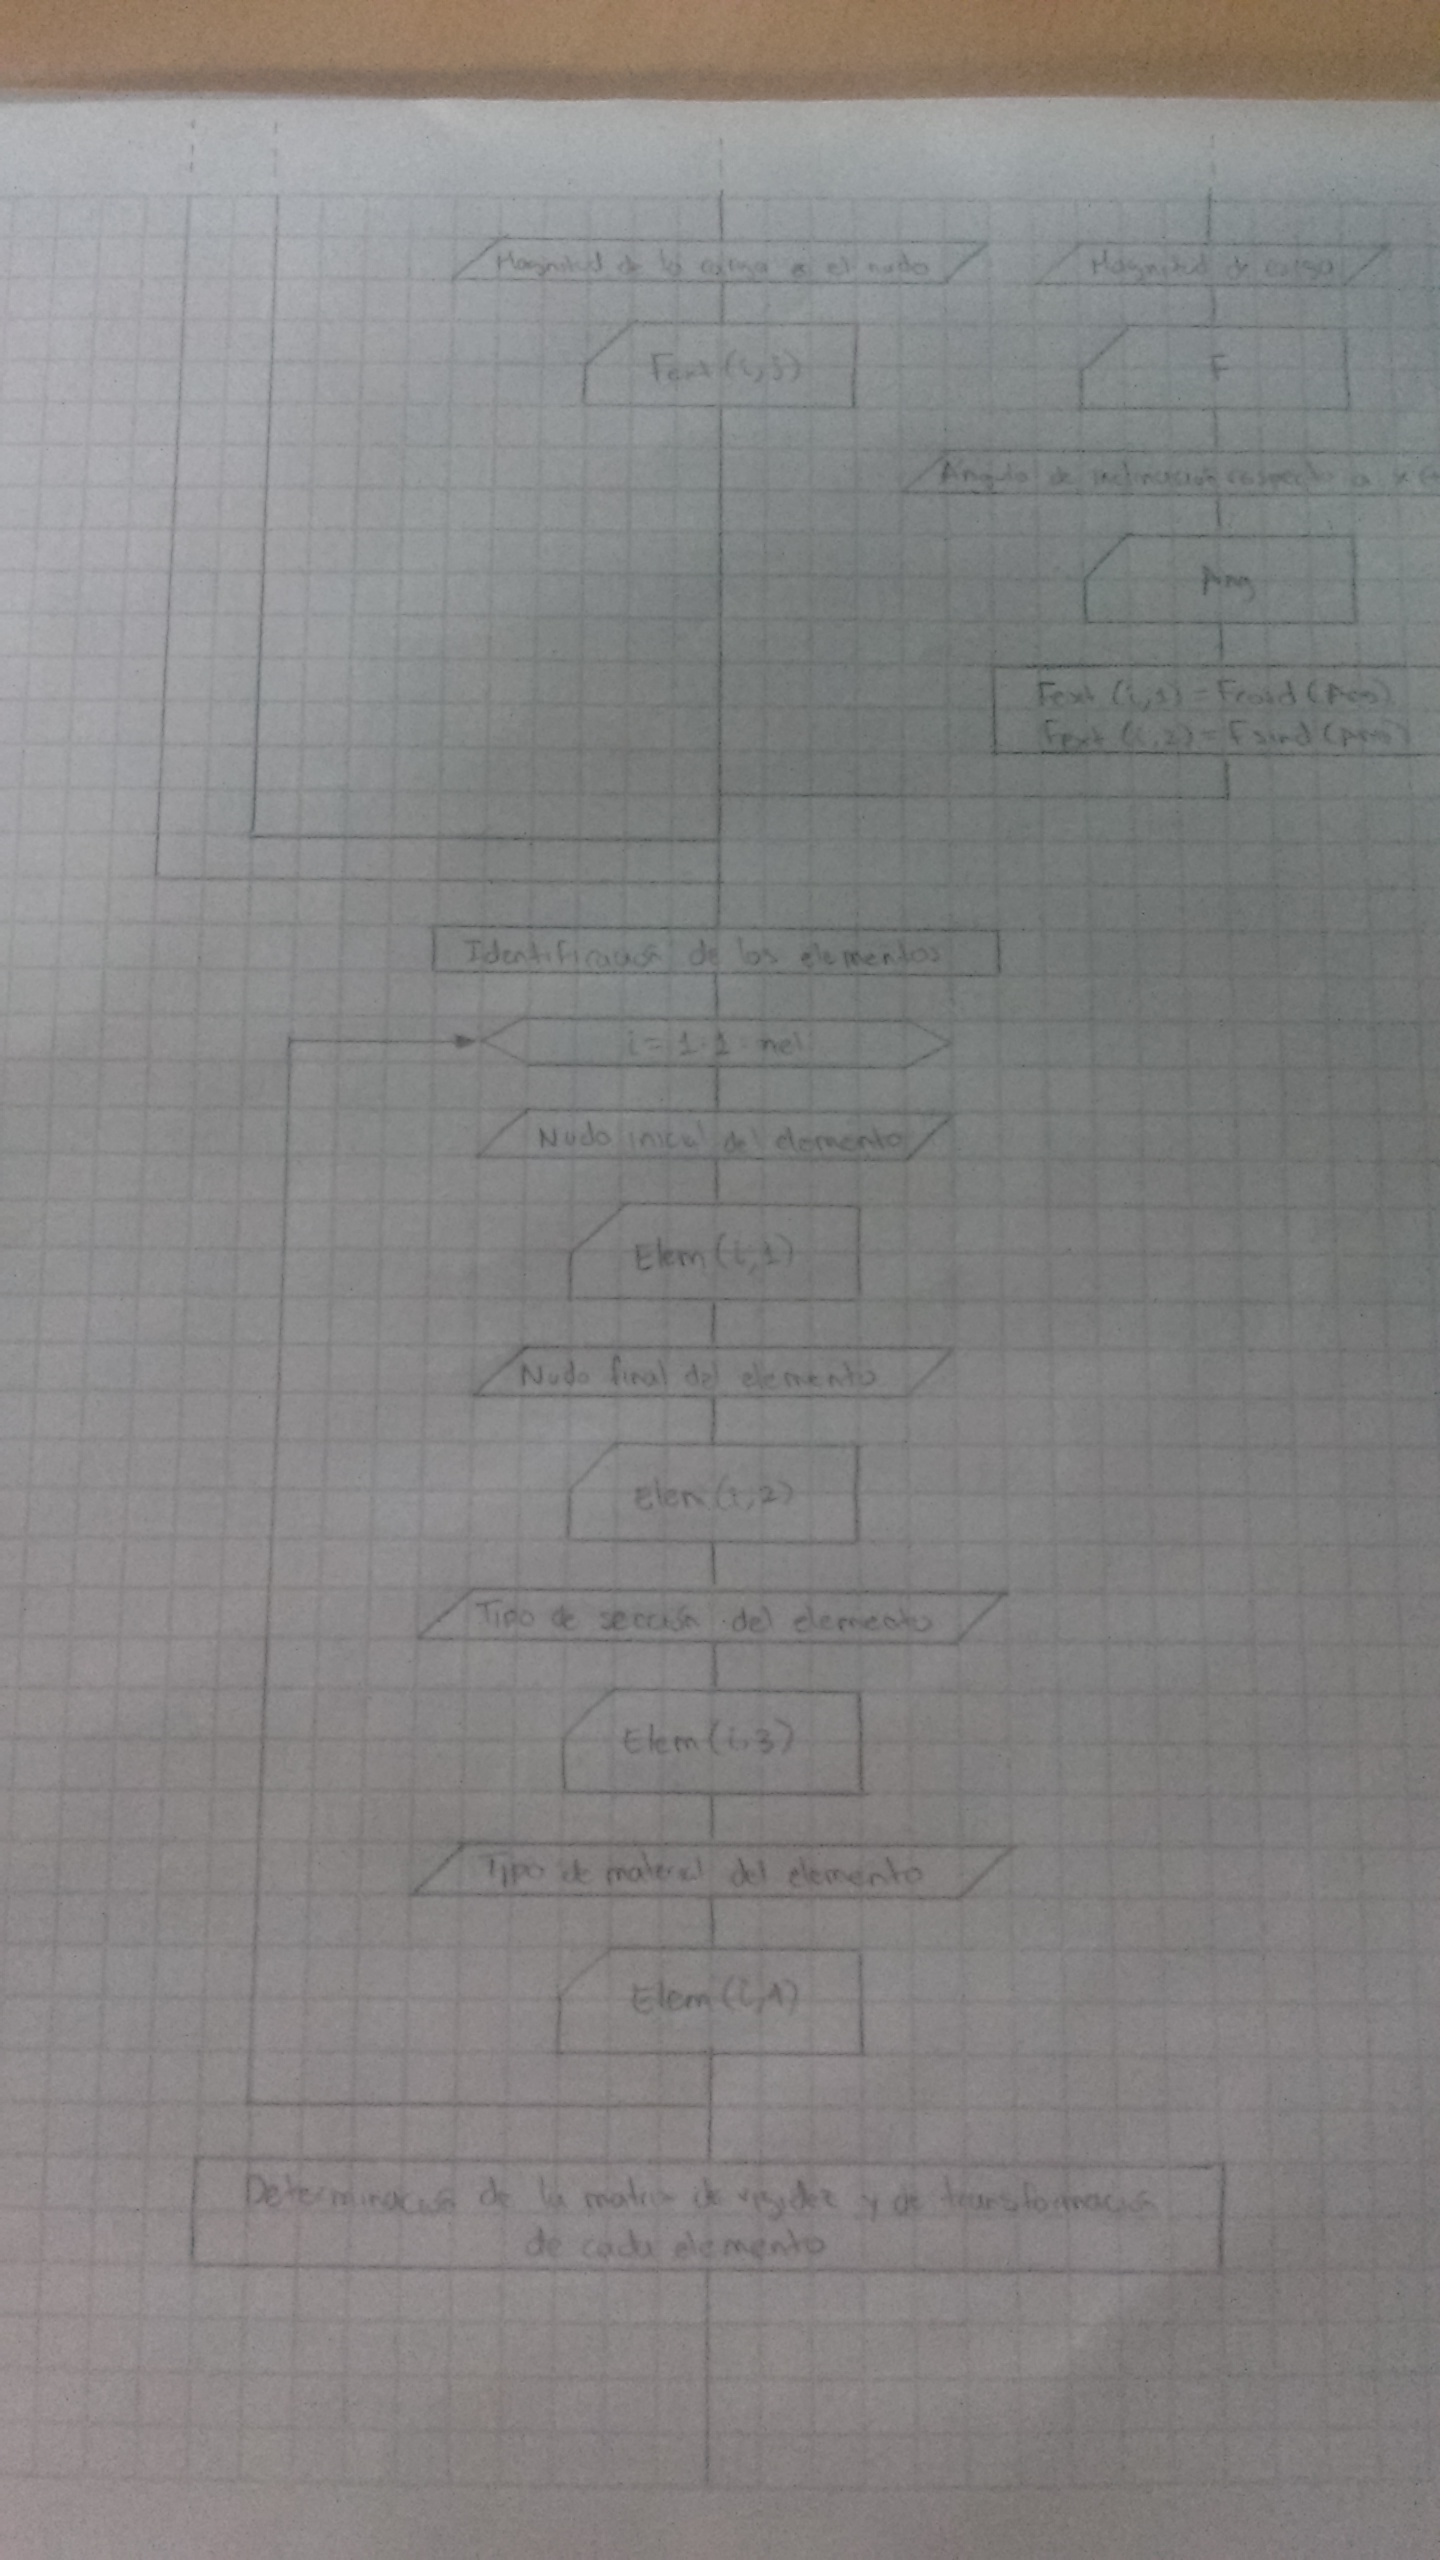 Magnitud de la carga a el nudo
Magnitud de carga
Fext (i,j)
F
Angulo de inclinación respecto a x
Ang
Fext (i,1) = Fcosd (Ang)
Fext (i,2) = Fsind (Ang)
Identificación de los elementos
i = 1:1: nel
Nudo inicial del elemento
Elem (i,1)
Nudo final del elemento
elem (i,2)
Tipo de sección del elemento
Elem (i,3)
Tipo de material del elemento
Elem
Determinación de la matriz de rigidez y de transformación
de cada elemento